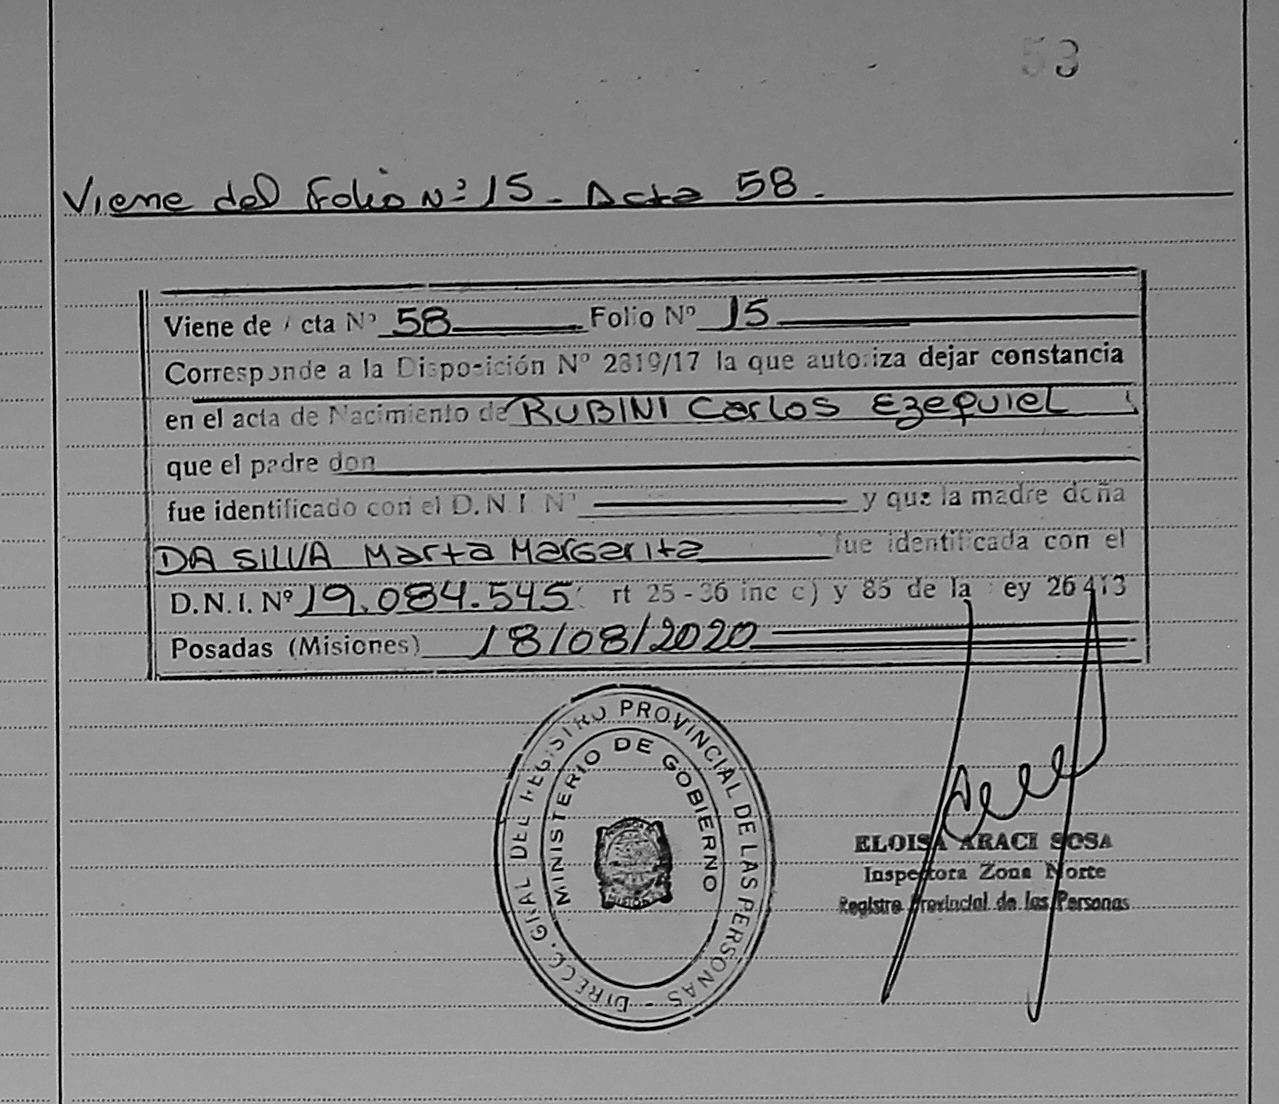 53
Viene del Folio Nº 15 - Acta 58.
Viene de cta Nº 58 Folio Nº 15
Corresponde a la Disposición Nº 2819/17 la que autoriza dejar constancia
en el acta de Nacimiento de RUBINI Carlos Ezequiel
que el padre don
fue identificado con el D.N.I. Nº y que la madre doña
DA SILVA Marta Margarita fue identificada con el
D.N.I. Nº 19.084.545 rt 25-36 inc c) y 85 de la ey 26413
Posadas (Misiones) 18/08/2020
DIRECC. GRAL DEL REGISTRO PROVINCIAL DE LAS PERSONAS -
MINISTERIO DE GOBIERNO
ELOISA ARACI SOSA
Inspectora Zona Norte
Registro Provincial de las Personas